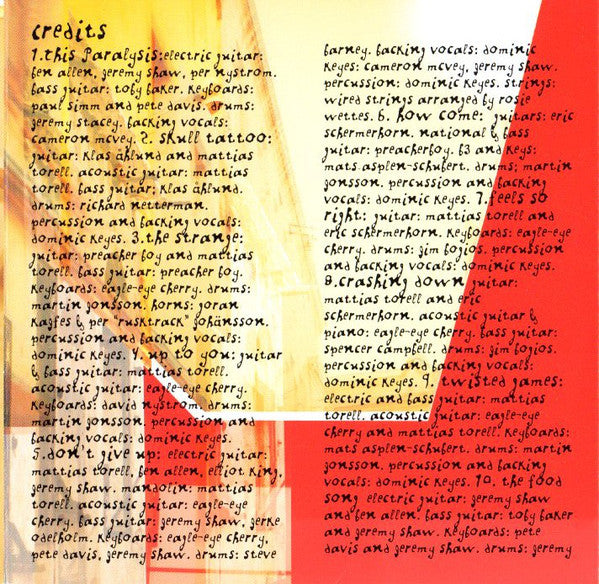 credits
1.this Paralysis:electric guitar:
ben allen, jeremy shaw, per nystrom.
bass guitar: toby baker. keyboards:
paul simm and pete davis. drums:
jeremy stacey. backing vocals:
cameron mcvey. 2. skull tattoo:
guitar: klas åhlund and mattias
torell. acoustic guitar: mattias
torell. bass guitar: klas åhlund.
drums: richard netterman.
percussion and backing vocals:
dominic keyes. 3.the strange:
guitar: preacher boy and mattias
torell. bass guitar: preacher boy.
keyboards: eagle-eye cherry. drums:
martin jonsson. horns: goran
kajfes & per "rusktrack" johansson.
percussion and backing vocals:
dominic keyes. 4. up to you: guitar
& bass guitar: mattias torell.
acoustic guitar: eagle-eye cherry.
keyboards: david nystrom. drums:
martin jonsson. percussion and
backing vocals: dominic keyes.
5.don't give up: electric guitar:
mattias torell, ben allen, elliot king,
jeremy shaw. mandolin: mattias
torell. acoustic guitar: eagle-eye
cherry. bass guitar: jeremy shaw, jerke
odelholm. keyboards: eagle-eye cherry,
pete davis, jeremy shaw. drums: steve
barney. backing vocals: dominic
keyes: cameron mcvey, jeremy shaw.
percussion: dominic keyes. strings:
wired strings arranged by rosie
wettes. 6. how come: guitars: eric
schermerhorn. national & bass
guitar: preacherboy. b3 and keys:
mats asplen-schubert. drums: martin
jonsson. percussion and backing
vocals: dominic keyes. 7.feels so
right: guitar: mattias torell and
eric schermerhorn. keyboards: eagle-eye
cherry. drums: jim bojios. percussion
and backing vocals: dominic keyes.
8.crashing down guitar:
mattias torell and eric
schermerhorn. acoustic guitar &
piano: eagle-eye cherry. bass guitar:
spencer campbell. drums: jim bojios.
percussion and backing vocals:
dominic keyes. 9. twisted games:
electric and bass guitar: mattias
torell. acoustic guitar: eagle-eye
cherry and mattias torell. keyboards:
mats asplen-schubert. drums: martin
jonsson. percussion and backing
vocals: dominic keyes. 10. the food
song electric guitar: jeremy shaw
and ben allen. bass guitar: toby baker
and jeremy shaw. keyboards: pete
davis and jeremy shaw. drums: jeremy